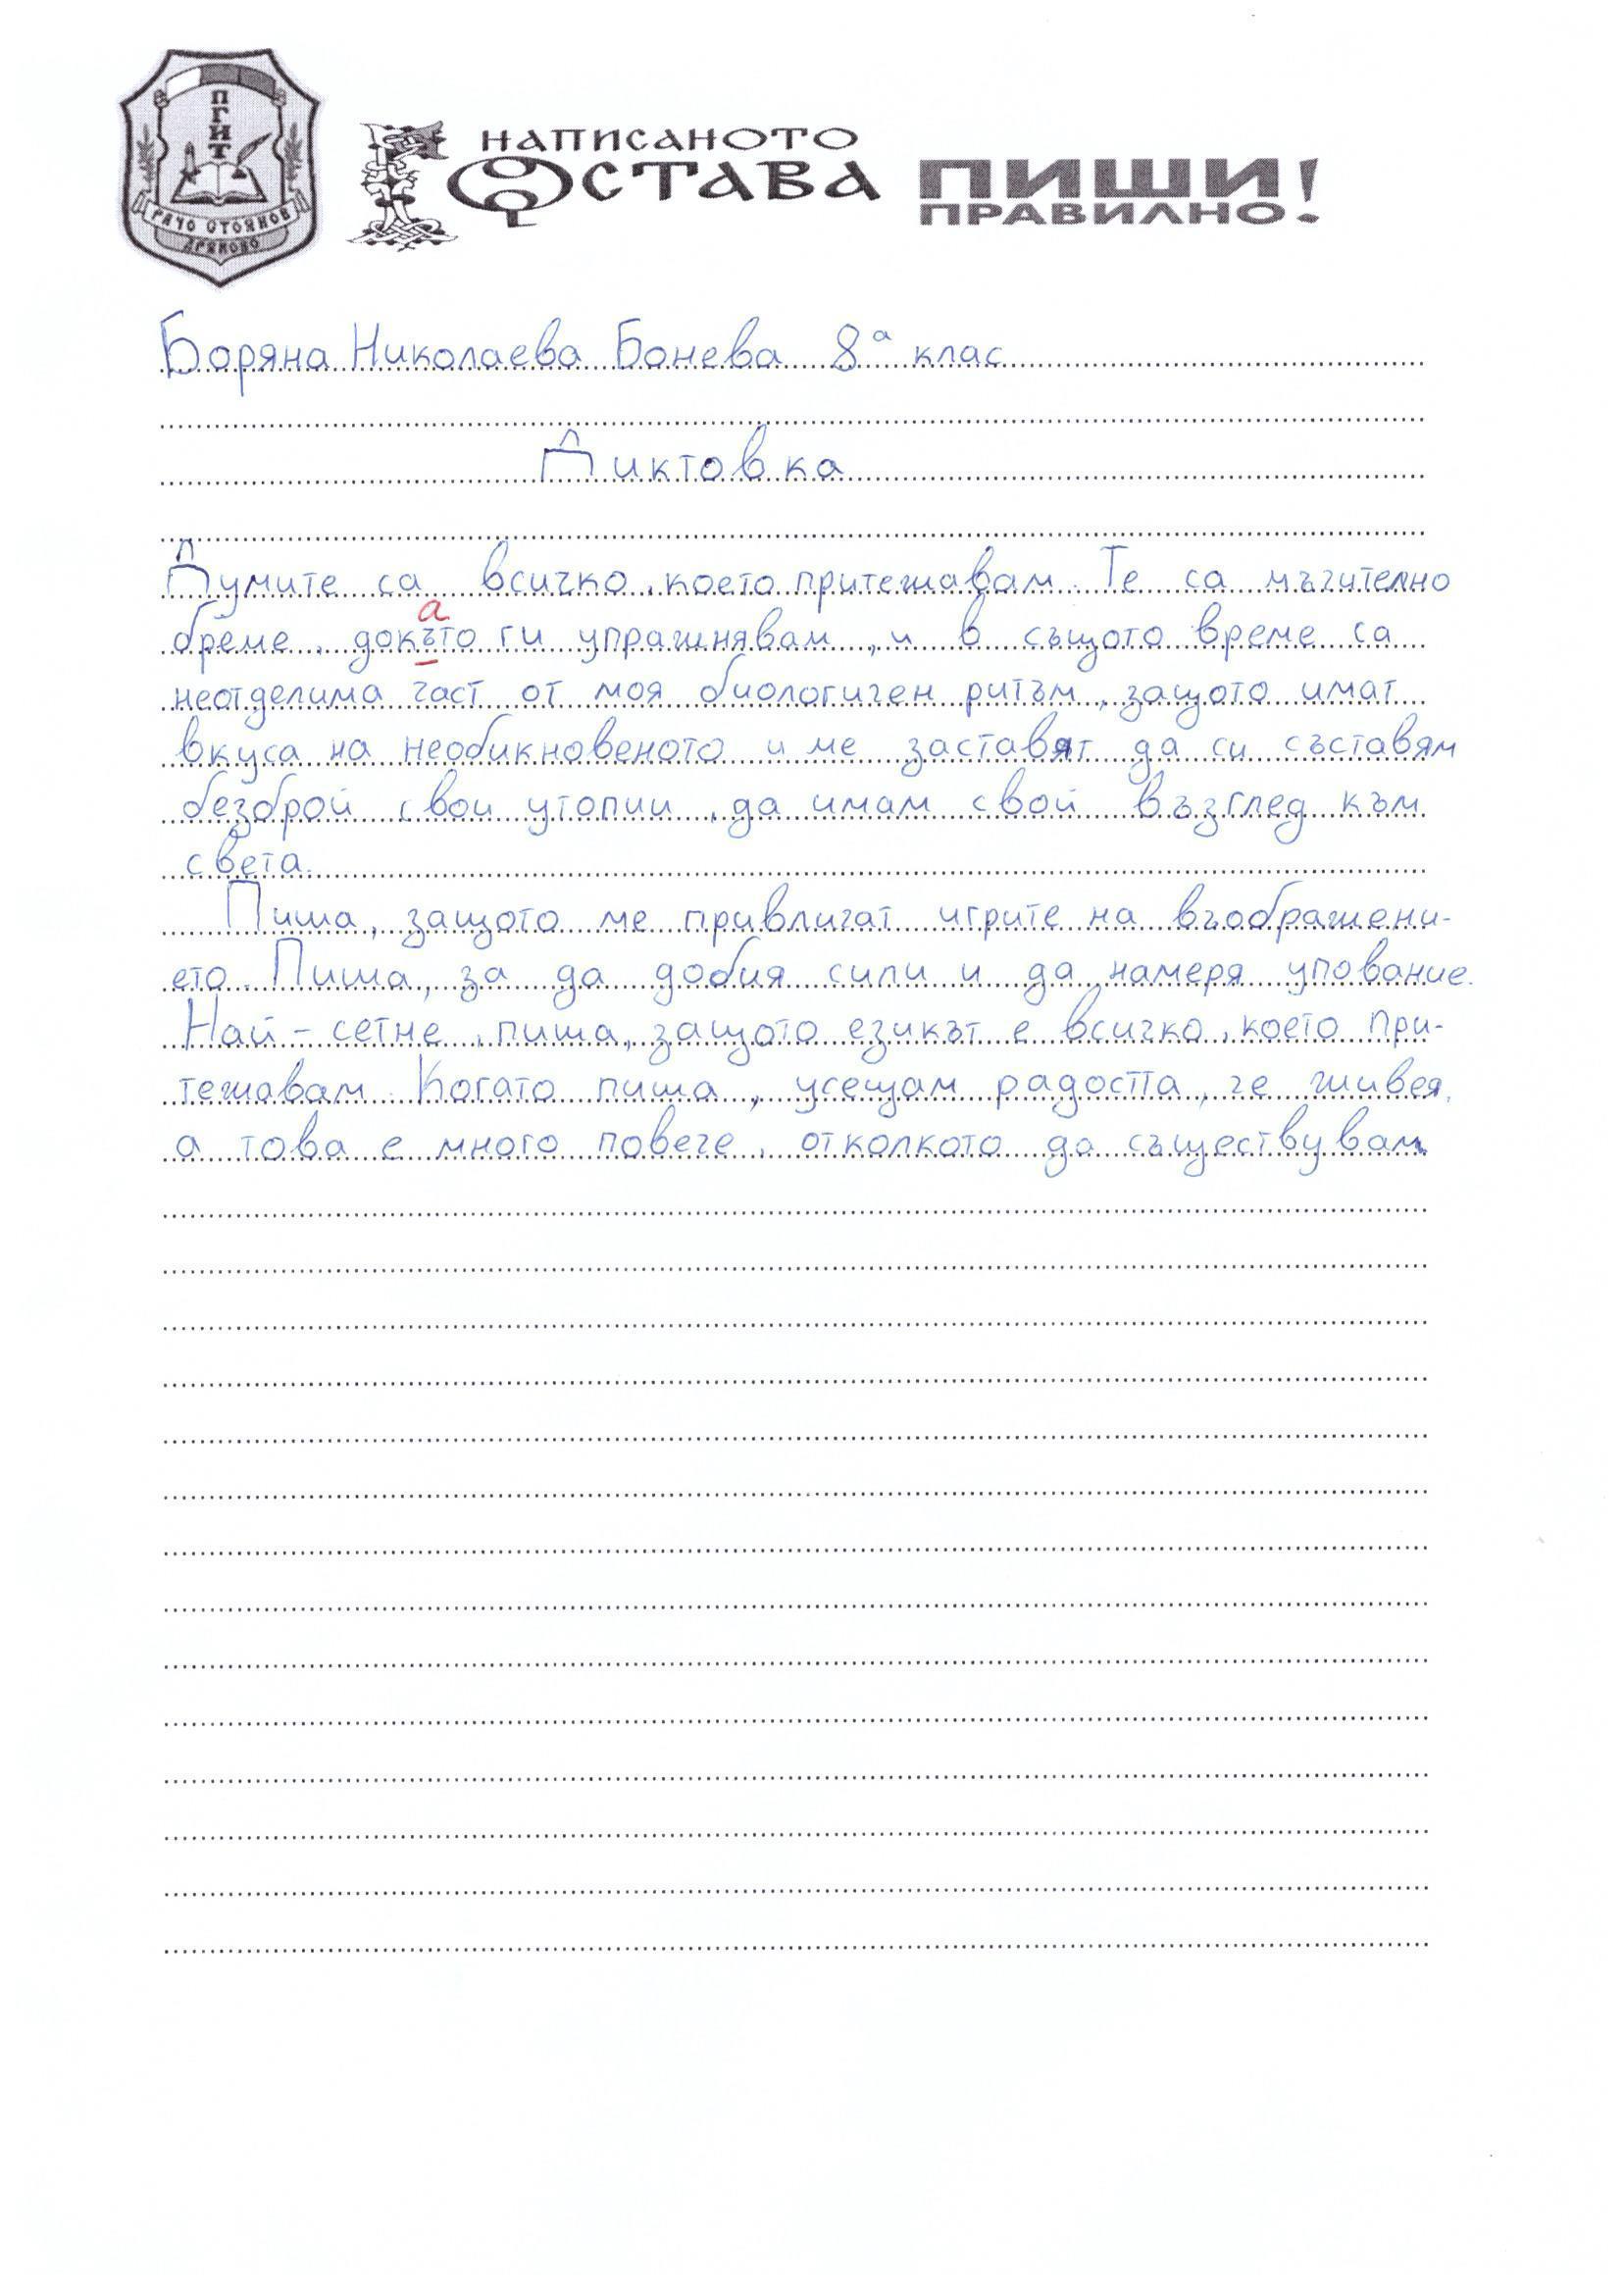 ПГИТ
РАЧО СТОЯНОВ
ДРЯНОВО
НАПИСАНОТО
ОСТАВА
ПИШИ
ПРАВИЛНО!
Боряна Николаева Бонева 8а клас
Диктовка
Думите са всичко, което притежавам. Те са мъчително
а
бреме, докъто ги упражнявам, и в същото време са
неотделима част от моя биологичен ритъм, защото имат
вкуса на необикновеното и ме заставят да си съставям
безброй свои утопии, да имам свой възглед към
света.
Пиша, защото ме привличат игрите на въображени-
ето. Пиша, за да добия сили и да намеря упование.
Най-сетне, пиша, защото езикът е всичко, което при-
тежавам. Когато пиша, усещам радостта, че живея,
а това е много повече, отколкото да съществувам.